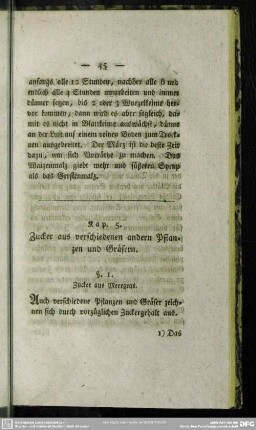 — 45 —
anfangs alle 12 Stunden, nachher alle 6 und
endlich alle 4 Stunden umarbeiten und immer
dünner setzen, bis 2 oder 3 Wurzelkeime her-
vor kommen, dann wird es aber sogleich, da-
mit es nicht in Blattkeime auswächst, dünne
an der Luft auf einem reinen Boden zum Trock-
nen ausgebreitet. Der März ist die beste Zeit
dazu, um sich Vorräthe zu machen. Das
Waizenmalz giebt mehr und süßeren Syrup
als das Gerstenmalz.
Kap. 5.
Zucker aus verschiedenen andern Pflan-
zen und Gräsern.
§. 1.
Zucker aus Meergras.
Auch verschiedene Pflanzen und Gräser zeich-
nen sich durch vorzüglichen Zuckergehalt aus.
1) Das
DFG